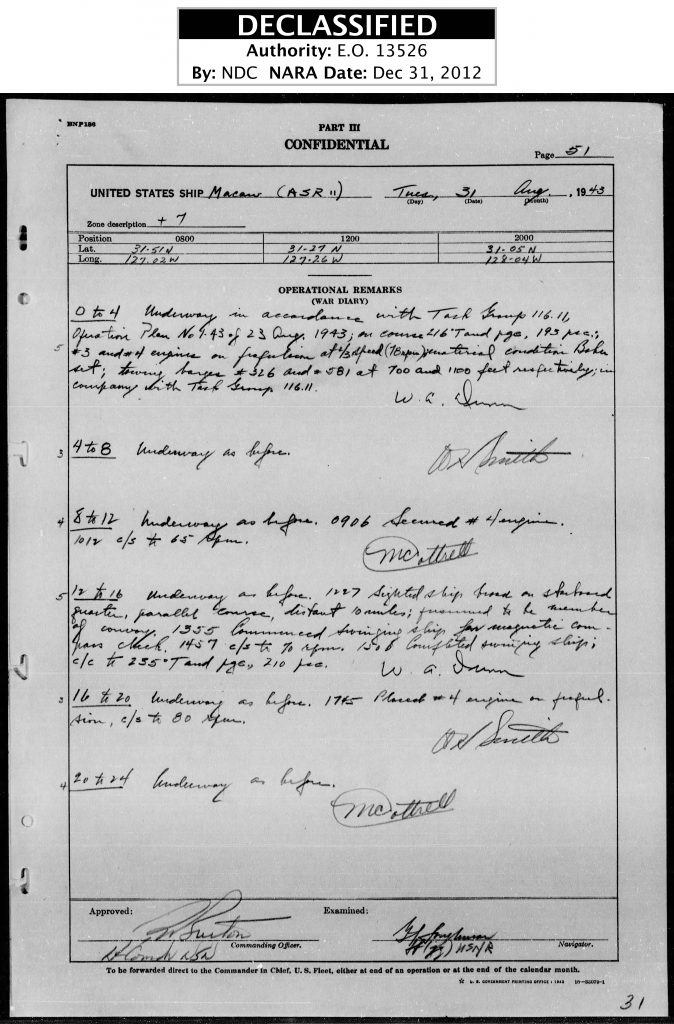 DECLASSIFIED
Authority: E.O. 13526
By: NDC NARA Date: Dec 31, 2012
BNP186
PART III
CONFIDENTIAL
Page 51
UNITED STATES SHIP Macaw (ASR 11) Tues, 31 Aug, 1943
(Day) (Date) (Month)
Zone description + 7
Position 0800 1200 2000
Lat. 31-51N 31-27N 31-05N
Long. 127-02W 127-26W 128-04W
OPERATIONAL REMARKS
(WAR DIARY)
0 to 4 Underway in accordance with Task Group 116.11,
Operation Plan No 1-43 of 23 Aug. 1943; on course 216°T and pgc, 193 psc.;
5 #3 and #4 engines on propulsion at 2/3 speed (78 rpm); material condition Baker
set; towing barges #326 and #581 at 700 and 1100 feet respectively; in
company with Task Group 116.11.
W. A. Dunn
3 4 to 8 Underway as before.
Smith
4 8 to 12 Underway as before. 0906 Secured #4 engine.
1012 c/s to 65 rpm.
McCottrell
5 12 to 16 Underway as before. 1227 Sighted ship broad on starboard
quarter, parallel course, distant 10 miles; presumed to be member
of convoy. 1355 Commenced swinging ship for magnetic com-
pass check. 1457 c/s to 70 rpm. 1506 Completed swinging ship;
c/c to 235°T and pgc, 210 psc.
W. A. Dunn
3 16 to 20 Underway as before. 1745 Placed #4 engine on propul-
sion, c/s to 80 rpm.
Smith
4 20 to 24 Underway as before.
McCottrell
Approved: Examined:
Burton
Lt Comdr USN Commanding Officer. Lt (jg) USNR Navigator.
To be forwarded direct to the Commander in Chief, U.S. Fleet, either at end of an operation or at the end of the calendar month.
U. S. GOVERNMENT PRINTING OFFICE : 1943
31